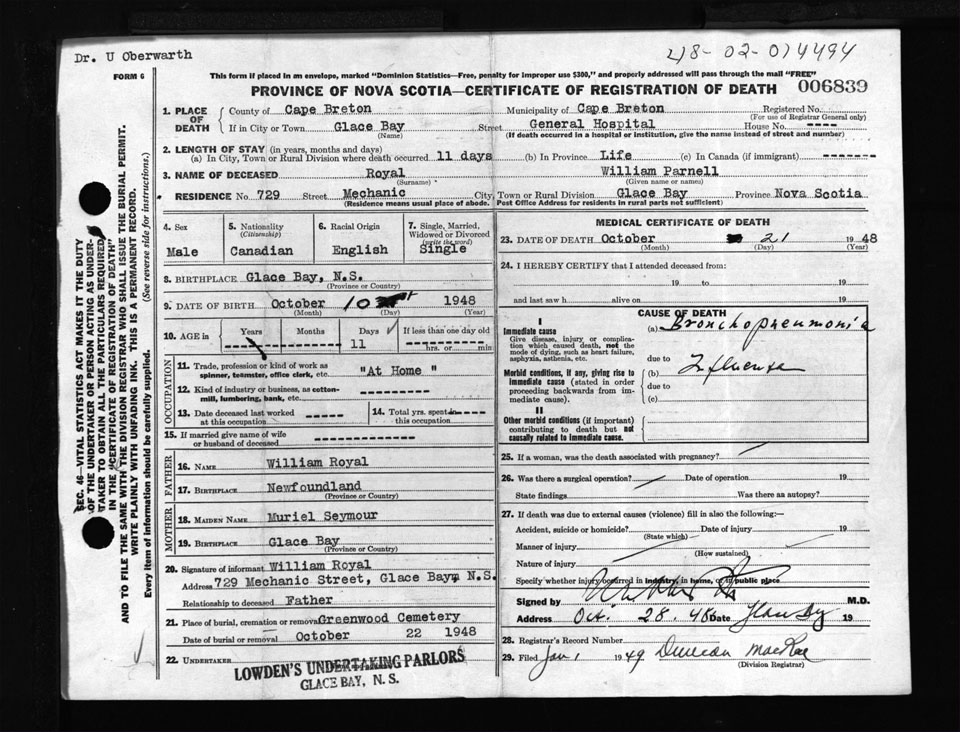 Dr. U Oberwarth
48-02-014494
FORM 6
This form if placed in an envelope, marked "Dominion Statistics—Free, penalty for improper use $300," and properly addressed will pass through the mail "FREE"
PROVINCE OF NOVA SCOTIA—CERTIFICATE OF REGISTRATION OF DEATH 006839
1. PLACE OF DEATH County of Cape Breton Municipality of Cape Breton Registered No.
(For use of Registrar General only)
If in City or Town Glace Bay Street General Hospital House No. ----
(Name) (If death occurred in a hospital or institution, give the name instead of street and number)
2. LENGTH OF STAY (in years, months and days)
(a) In City, Town or Rural Division where death occurred 11 days (b) In Province Life (c) In Canada (if immigrant) -------
3. NAME OF DECEASED Royal William Parnell
(Surname) (Given name or names)
RESIDENCE No. 729 Street Mechanic City, Town or Rural Division Glace Bay Province Nova Scotia
(Residence means usual place of abode. Post Office Address for residents in rural parts not sufficient)
4. Sex Male
5. Nationality (Citizenship) Canadian
6. Racial Origin English
7. Single, Married, Widowed or Divorced (write the word) Single
8. BIRTHPLACE Glace Bay, N.S.
(Province or Country)
9. DATE OF BIRTH October 10 1948
(Month) (Day) (Year)
10. AGE in Years Months Days 11 If less than one day old
hrs. or min
OCCUPATION
11. Trade, profession or kind of work as spinner, teamster, office clerk, etc. "At Home"
12. Kind of industry or business, as cotton-mill, lumbering, bank, etc. -----
13. Date deceased last worked at this occupation -----
14. Total yrs. spent in this occupation -----
15. If married give name of wife or husband of deceased -------------
FATHER
16. NAME William Royal
17. BIRTHPLACE Newfoundland
(Province or Country)
MOTHER
18. MAIDEN NAME Muriel Seymour
19. BIRTHPLACE Glace Bay
(Province or Country)
20. Signature of informant William Royal
Address 729 Mechanic Street, Glace Bay, N.S.
Relationship to deceased Father
21. Place of burial, cremation or removal Greenwood Cemetery
Date of burial or removal October 22 1948
22. UNDERTAKER LOWDEN'S UNDERTAKING PARLORS
GLACE BAY, N. S.
MEDICAL CERTIFICATE OF DEATH
23. DATE OF DEATH October 21 1948
(Month) (Day) (Year)
24. I HEREBY CERTIFY that I attended deceased from:
19 to 19
and last saw h alive on 19
CAUSE OF DEATH
I
Immediate cause (a) Bronchopneumonia
Give disease, injury or complication which caused death, not the mode of dying, such as heart failure, asphyxia, asthenia, etc.
due to
Morbid conditions, if any, giving rise to immediate cause (stated in order proceeding backwards from immediate cause).
(b) Influenza
due to
(c)
II
Other morbid conditions (if important) contributing to death but not causally related to immediate cause.
25. If a woman, was the death associated with pregnancy?
26. Was there a surgical operation? Date of operation 19
State findings Was there an autopsy?
27. If death was due to external causes (violence) fill in also the following:—
Accident, suicide or homicide? Date of injury 19
(State which)
Manner of injury
(How sustained)
Nature of injury
Specify whether injury occurred in industry, in home, or in public place
Signed by M.D.
Oct. 28. 48 Date 19
28. Registrar's Record Number
29. Filed Jan 1 1949 Duncan MacRae
(Division Registrar)
SEC. 46—VITAL STATISTICS ACT MAKES IT THE DUTY
OF THE UNDERTAKER OR PERSON ACTING AS UNDER-
TAKER TO OBTAIN ALL THE PARTICULARS REQUIRED
IN THE "CERTIFICATE OF REGISTRATION OF DEATH"
AND TO FILE THE SAME WITH THE DIVISION REGISTRAR WHO SHALL ISSUE THE BURIAL PERMIT.
WRITE PLAINLY WITH UNFADING INK. THIS IS A PERMANENT RECORD.
Every item of information should be carefully supplied. (See reverse side for instructions.)